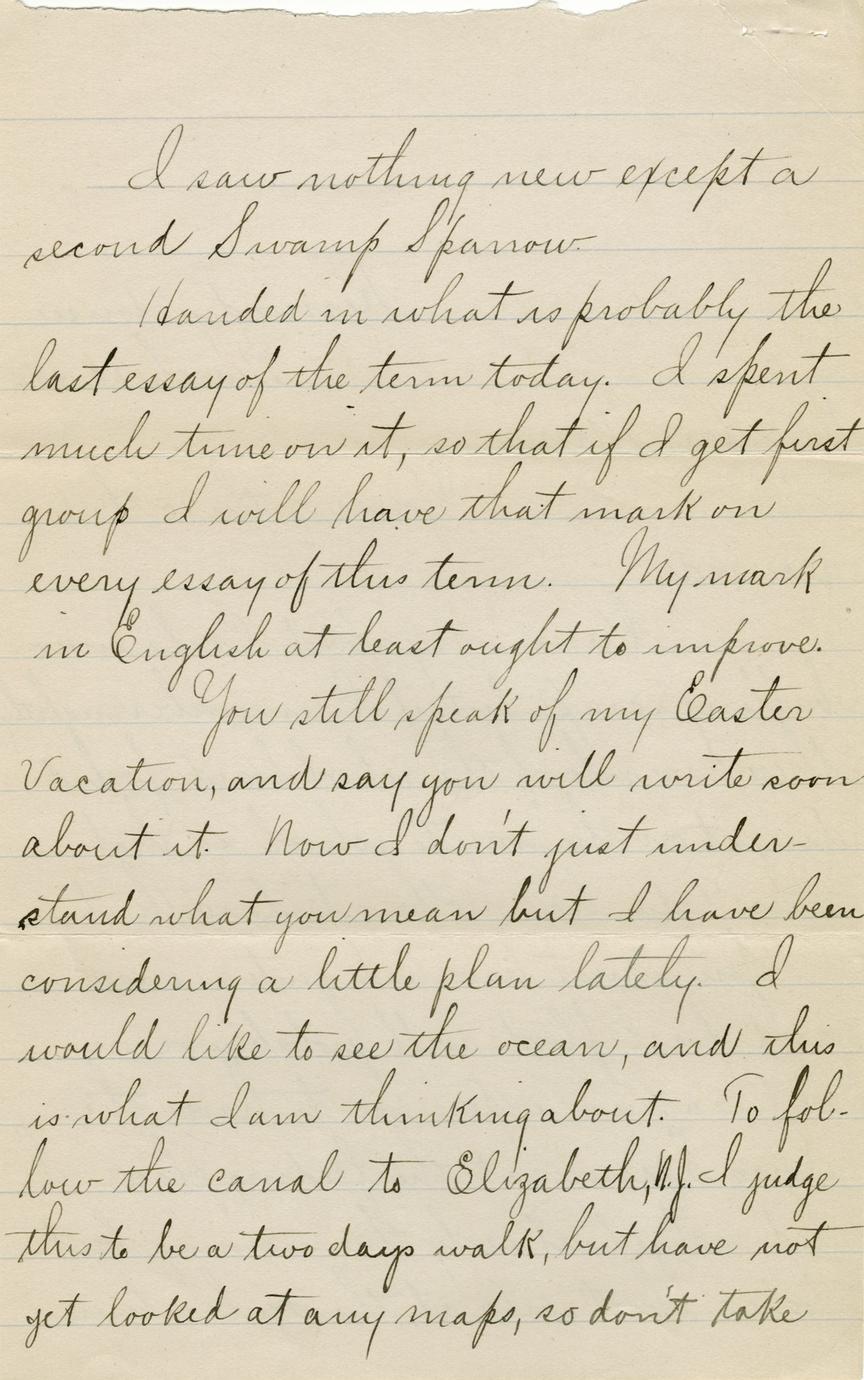 I saw nothing new except a
second Swamp Sparrow.
Handed in what is probably the
last essay of the term today. I spent
much time on it, so that if I get first
group I will have that mark on
every essay of this term. My mark
in English at least ought to improve.
You still speak of my Easter
Vacation, and say you will write soon
about it. Now I don't just under-
stand what you mean but I have been
considering a little plan lately. I
would like to see the ocean, and this
is what I am thinking about. To fol-
low the canal to Elizabeth, N.J. I judge
this to be a two days walk, but have not
yet looked at any maps, so don't take